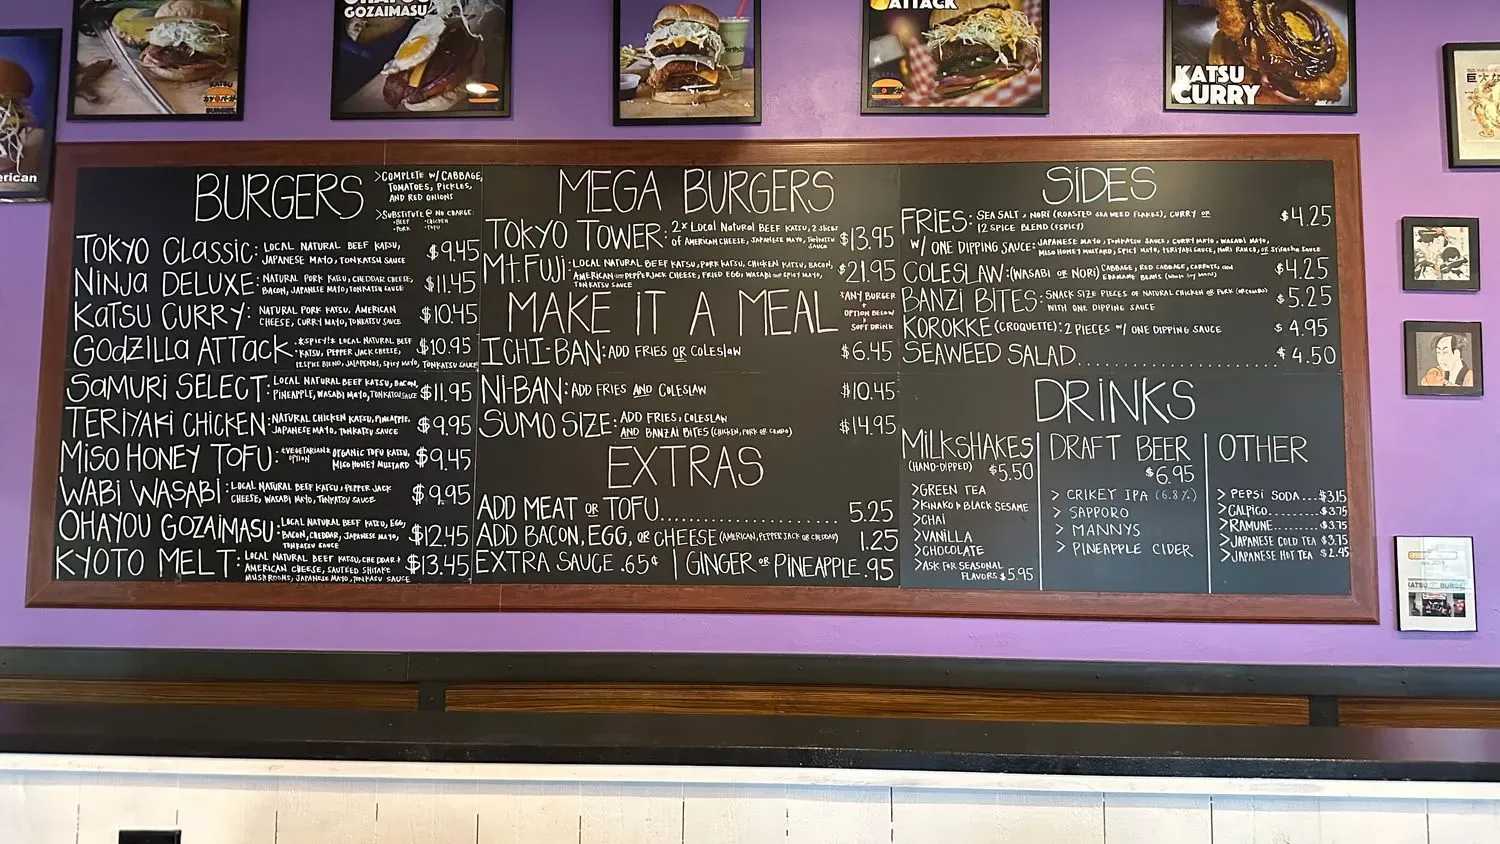 GOZAIMASU
ATTACK
KATSU
KATSU
BURGER
KATSU
CURRY
erican
BURGERS
>COMPLETE W/ CABBAGE,
TOMATOES, PICKLES,
AND RED ONIONS
>SUBSTITUTE @ NO CHARGE:
•BEEF •CHICKEN
•PORK •TOFU
TOKYO CLASSIC: LOCAL NATURAL BEEF KATSU,
JAPANESE MAYO, TONKATSU SAUCE $9.45
NINJA DELUXE: NATURAL PORK KATSU, CHEDDAR CHEESE,
BACON, JAPANESE MAYO, TONKATSU SAUCE $11.45
KATSU CURRY: NATURAL PORK KATSU, AMERICAN
CHEESE, CURRY MAYO, TONKATSU SAUCE $10.45
GODZILLA ATTACK: *SPICY!* LOCAL NATURAL BEEF
KATSU, PEPPER JACK CHEESE, $10.95
12 SPICE BLEND, JALAPENOS, SPICY MAYO, TONKATSU SAUCE
SAMURI SELECT: LOCAL NATURAL BEEF KATSU, BACON,
PINEAPPLE, WASABI MAYO, TONKATSU SAUCE $11.95
TERIYAKI CHICKEN: NATURAL CHICKEN KATSU, PINEAPPLE,
JAPANESE MAYO, TONKATSU SAUCE $9.95
MISO HONEY TOFU: *VEGETARIAN* OPTION ORGANIC TOFU KATSU,
MISO HONEY MUSTARD $9.45
WABI WASABI: LOCAL NATURAL BEEF KATSU, PEPPER JACK
CHEESE, WASABI MAYO, TONKATSU SAUCE $9.95
OHAYOU GOZAIMASU: LOCAL NATURAL BEEF KATSU, EGG,
BACON, CHEDDAR, JAPANESE MAYO, $12.45
TONKATSU SAUCE
KYOTO MELT: LOCAL NATURAL BEEF KATSU, CHEDDAR +
AMERICAN CHEESE, SAUTEED SHITAKE $13.45
MUSHROOMS, JAPANESE MAYO, TONKASU SAUCE
MEGA BURGERS
TOKYO TOWER: 2x LOCAL NATURAL BEEF KATSU, 2 SLICES
OF AMERICAN CHEESE, JAPANESE MAYO, TONKATSU $13.95
SAUCE
Mt. FUJI: LOCAL NATURAL BEEF KATSU, PORK KATSU, CHICKEN KATSU, BACON,
AMERICAN AND PEPPERJACK CHEESE, FRIED EGG, WASABI AND SPICY MAYO, $21.95
TONKATSU SAUCE
MAKE IT A MEAL
*ANY BURGER
+
OPTION BELOW
+
SOFT DRINK
ICHI-BAN: ADD FRIES OR COLESLAW $6.45
NI-BAN: ADD FRIES AND COLESLAW $10.45
SUMO SIZE: ADD FRIES, COLESLAW
AND BANZAI BITES (CHICKEN, PORK OR COMBO) $14.95
EXTRAS
ADD MEAT OR TOFU........................ 5.25
ADD BACON, EGG, OR CHEESE (AMERICAN, PEPPER JACK OR CHEDDAR) 1.25
EXTRA SAUCE .65¢ | GINGER OR PINEAPPLE .95
SIDES
FRIES: SEA SALT, NORI (ROASTED SEAWEED FLAKES), CURRY OR
12 SPICE BLEND (SPICY) $4.25
W/ ONE DIPPING SAUCE: JAPANESE MAYO, TONKATSU SAUCE, CURRY MAYO, WASABI MAYO,
MISO HONEY MUSTARD, SPICY MAYO, TERIYAKI SAUCE, NORI RANCH, OR SRIRACHA SAUCE
COLESLAW: (WASABI OR NORI) CABBAGE, RED CABBAGE, CARROTS, AND
EDAMAME BEANS $4.25
BANZI BITES: SNACK SIZE PIECES OF NATURAL CHICKEN OR PORK (OR COMBO)
WITH ONE DIPPING SAUCE $5.25
KOROKKE (CROQUETTE): 2 PIECES W/ ONE DIPPING SAUCE $4.95
SEAWEED SALAD........................ $4.50
DRINKS
MILKSHAKES
(HAND-DIPPED) $5.50
>GREEN TEA
>KINAKO & BLACK SESAME
>CHAI
>VANILLA
>CHOCOLATE
>ASK FOR SEASONAL
FLAVORS $5.95
DRAFT BEER
$6.95
> CRIKEY IPA (6.8%)
> SAPPORO
> MANNYS
> PINEAPPLE CIDER
OTHER
>PEPSI SODA...$3.15
>CALPICO........$3.75
>RAMUNE........$3.75
>JAPANESE COLD TEA $3.75
>JAPANESE HOT TEA $2.45